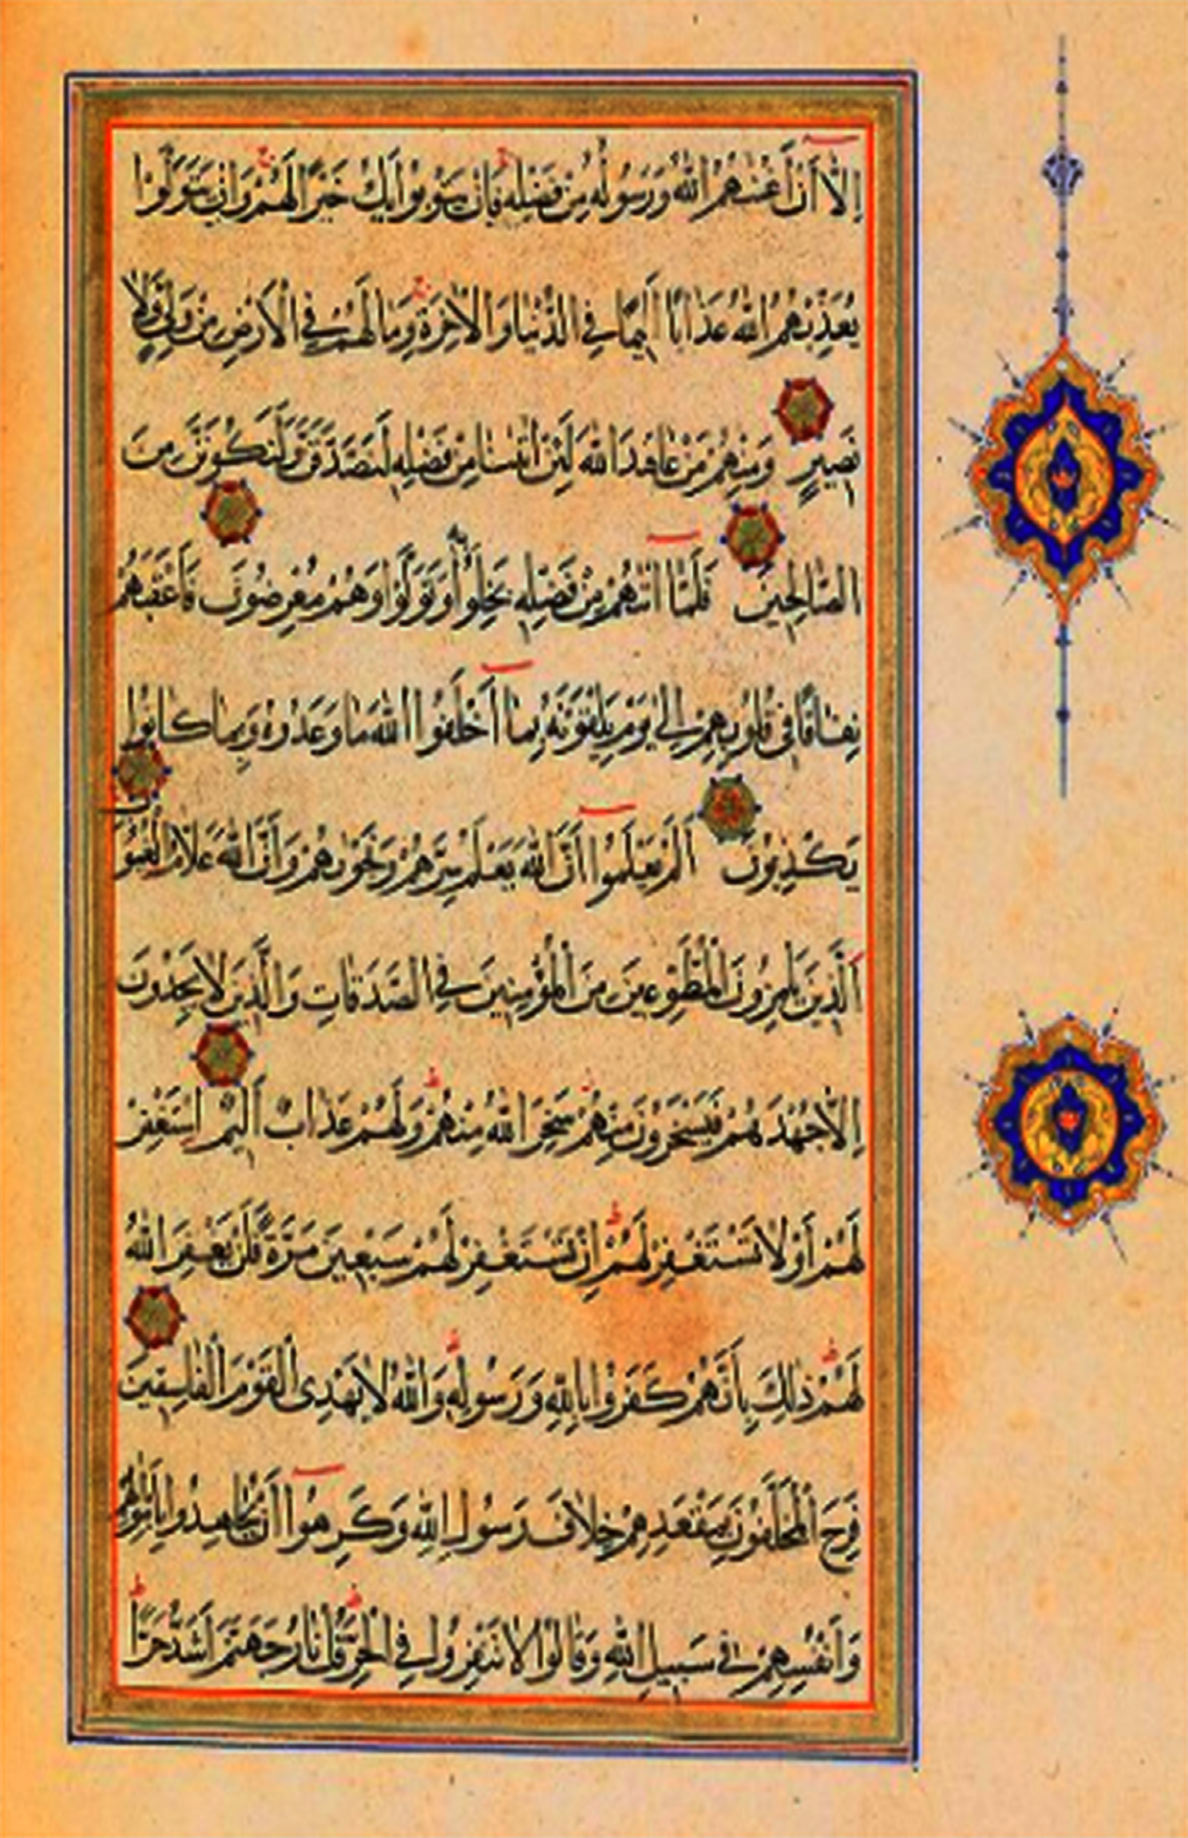 إِلَّا أَنْ أَغْنٰهُمُ اللّٰهُ وَرَسُولُهُ مِنْ فَضْلِهِ فَإِنْ يَتُوبُوا يَكُ خَيْرًا لَهُمْ وَإِنْ يَتَوَلَّوْا
يُعَذِّبْهُمُ اللّٰهُ عَذَابًا أَلِيمًا فِي الدُّنْيَا وَالْاٰخِرَةِ وَمَا لَهُمْ فِي الْأَرْضِ مِنْ وَلِيٍّ وَلَا
نَصِيرٍ وَمِنْهُمْ مَنْ عَاهَدَ اللّٰهَ لَئِنْ اٰتٰىنَا مِنْ فَضْلِهِ لَنَصَّدَّقَنَّ وَلَنَكُونَنَّ مِنَ
الصَّالِحِينَ فَلَمَّا اٰتٰىهُمْ مِنْ فَضْلِهِ بَخِلُوا بِهِ وَتَوَلَّوْا وَهُمْ مُعْرِضُونَ فَأَعْقَبَهُمْ
نِفَاقًا فِي قُلُوبِهِمْ إِلٰى يَوْمِ يَلْقَوْنَهُ بِمَا أَخْلَفُوا اللّٰهَ مَا وَعَدُوهُ وَبِمَا كَانُوا
يَكْذِبُونَ أَلَمْ يَعْلَمُوا أَنَّ اللّٰهَ يَعْلَمُ سِرَّهُمْ وَنَجْوٰىهُمْ وَأَنَّ اللّٰهَ عَلَّامُ الْغُيُوبِ
اَلَّذِينَ يَلْمِزُونَ الْمُطَّوِّعِينَ مِنَ الْمُؤْمِنِينَ فِي الصَّدَقَاتِ وَالَّذِينَ لَا يَجِدُونَ
إِلَّا جُهْدَهُمْ فَيَسْخَرُونَ مِنْهُمْ سَخِرَ اللّٰهُ مِنْهُمْ وَلَهُمْ عَذَابٌ أَلِيمٌ اِسْتَغْفِرْ
لَهُمْ أَوْ لَا تَسْتَغْفِرْ لَهُمْ إِنْ تَسْتَغْفِرْ لَهُمْ سَبْعِينَ مَرَّةً فَلَنْ يَغْفِرَ اللّٰهُ
لَهُمْ ذٰلِكَ بِأَنَّهُمْ كَفَرُوا بِاللّٰهِ وَرَسُولِهِ وَاللّٰهُ لَا يَهْدِي الْقَوْمَ الْفَاسِقِينَ
فَرِحَ الْمُخَلَّفُونَ بِمَقْعَدِهِمْ خِلَافَ رَسُولِ اللّٰهِ وَكَرِهُوا أَنْ يُجَاهِدُوا بِأَمْوَالِهِمْ
وَأَنْفُسِهِمْ فِي سَبِيلِ اللّٰهِ وَقَالُوا لَا تَنْفِرُوا فِي الْحَرِّ قُلْ نَارُ جَهَنَّمَ أَشَدُّ حَرًّا